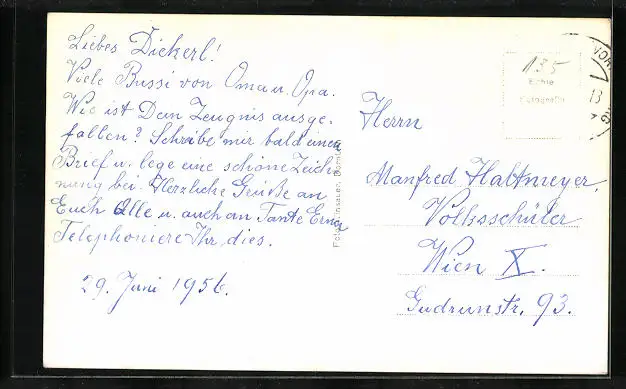 Liebes Dickerl!
Viele Bussi von Oma u. Opa.
Wie ist Dein Zeugnis ausge-
fallen? Schreibe mir bald einen
Brief u. lege eine schöne Zeich-
nung bei. Herzliche Grüße an
Euch Alle u. auch an Tante Erna
Telephoniere Ihr dies.
29. Juni 1956.
135
Echte
Fotografie
Herrn
Manfred Haltmeyer,
Volksschüler
Wien X.
Gudrunstr. 93.